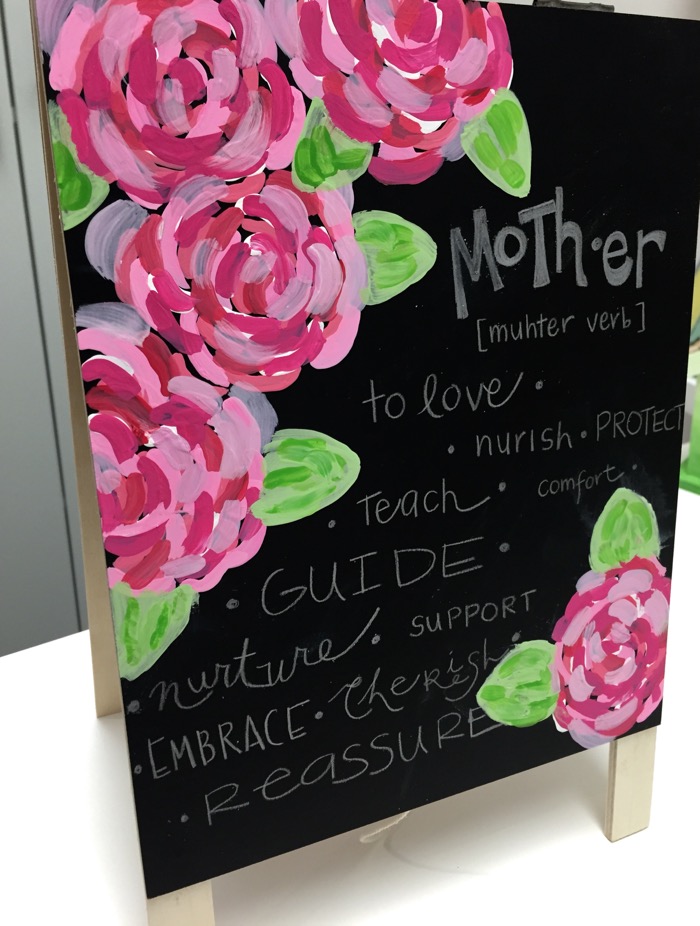 MoTh·er
[muhter verb]
to love ·
· nurish · PROTECT
· Teach · comfort ·
· GUIDE ·
· nurture · SUPPORT
· EMBRACE · cherish ·
· ReassURE